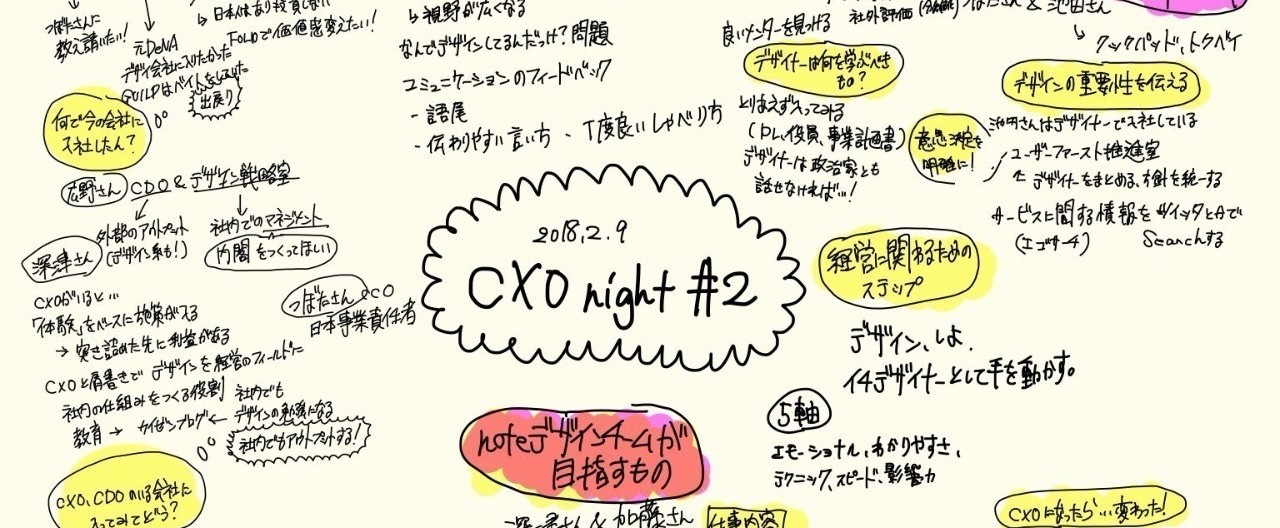 つぼたさんに
教え請いたい!
元DeNA
デザイン会社に入りたかった
→日本人はあり投資しない
FOLIOで価値感変えたい!
出戻り
何で今の会社に
入社したん?
広野さん
CDO & デザイン戦略室
外部のアウトプット
(デザイン系も!)
社内でのマネジメント
内閣をつくってほしい
深津さん
CXOがいると…
「体験」をベースに施策が入る
→ 突き詰めた先に利益がある
CXOと肩書きでデザインを経営のフィールドに
社内の仕組みをつくる役割
教育 → カイゼンブログ ←
社内でも
デザインの勉強になる
社内でもアウトプットする!
CXO, CDOのいる会社に
入ってみてどう?
つぼたさん
日本事業責任者
→ 視野が広くなる
なんでデザインしてるんだっけ?問題
コミュニケーションのフィードバック
- 語尾
- 伝わりやすい言い方
- 丁度良いしゃべり方
2018.2.9
CXO night #2
noteデザインチームが
目指すもの
深津さん & 加藤さん
仕事内容
良いメンターを見つける
社外評価
デザイナーは何を学ぶべき
もの?
とりあえず入ってみる
(PL, 役員, 事業計画書)
デザイナーは政治家とも
話せなければ…!
意思決定を
明確に!
& 池田さん
↳ クックパッド, トクバイ
デザインの重要性を伝える
池田さんはデザイナーで入社している
ユーザーファースト推進室
↑ デザイナーをまとめる, 方針を統一する
サービスに関する情報をツイッタとかで
(エゴサーチ) Searchする
経営に関わるための
ステップ
デザイン, しよ.
イチデザイナーとして手を動かす。
5軸
エモーショナル, わかりやすさ,
テクニック, スピード, 影響力
CXOになったら…変わった!